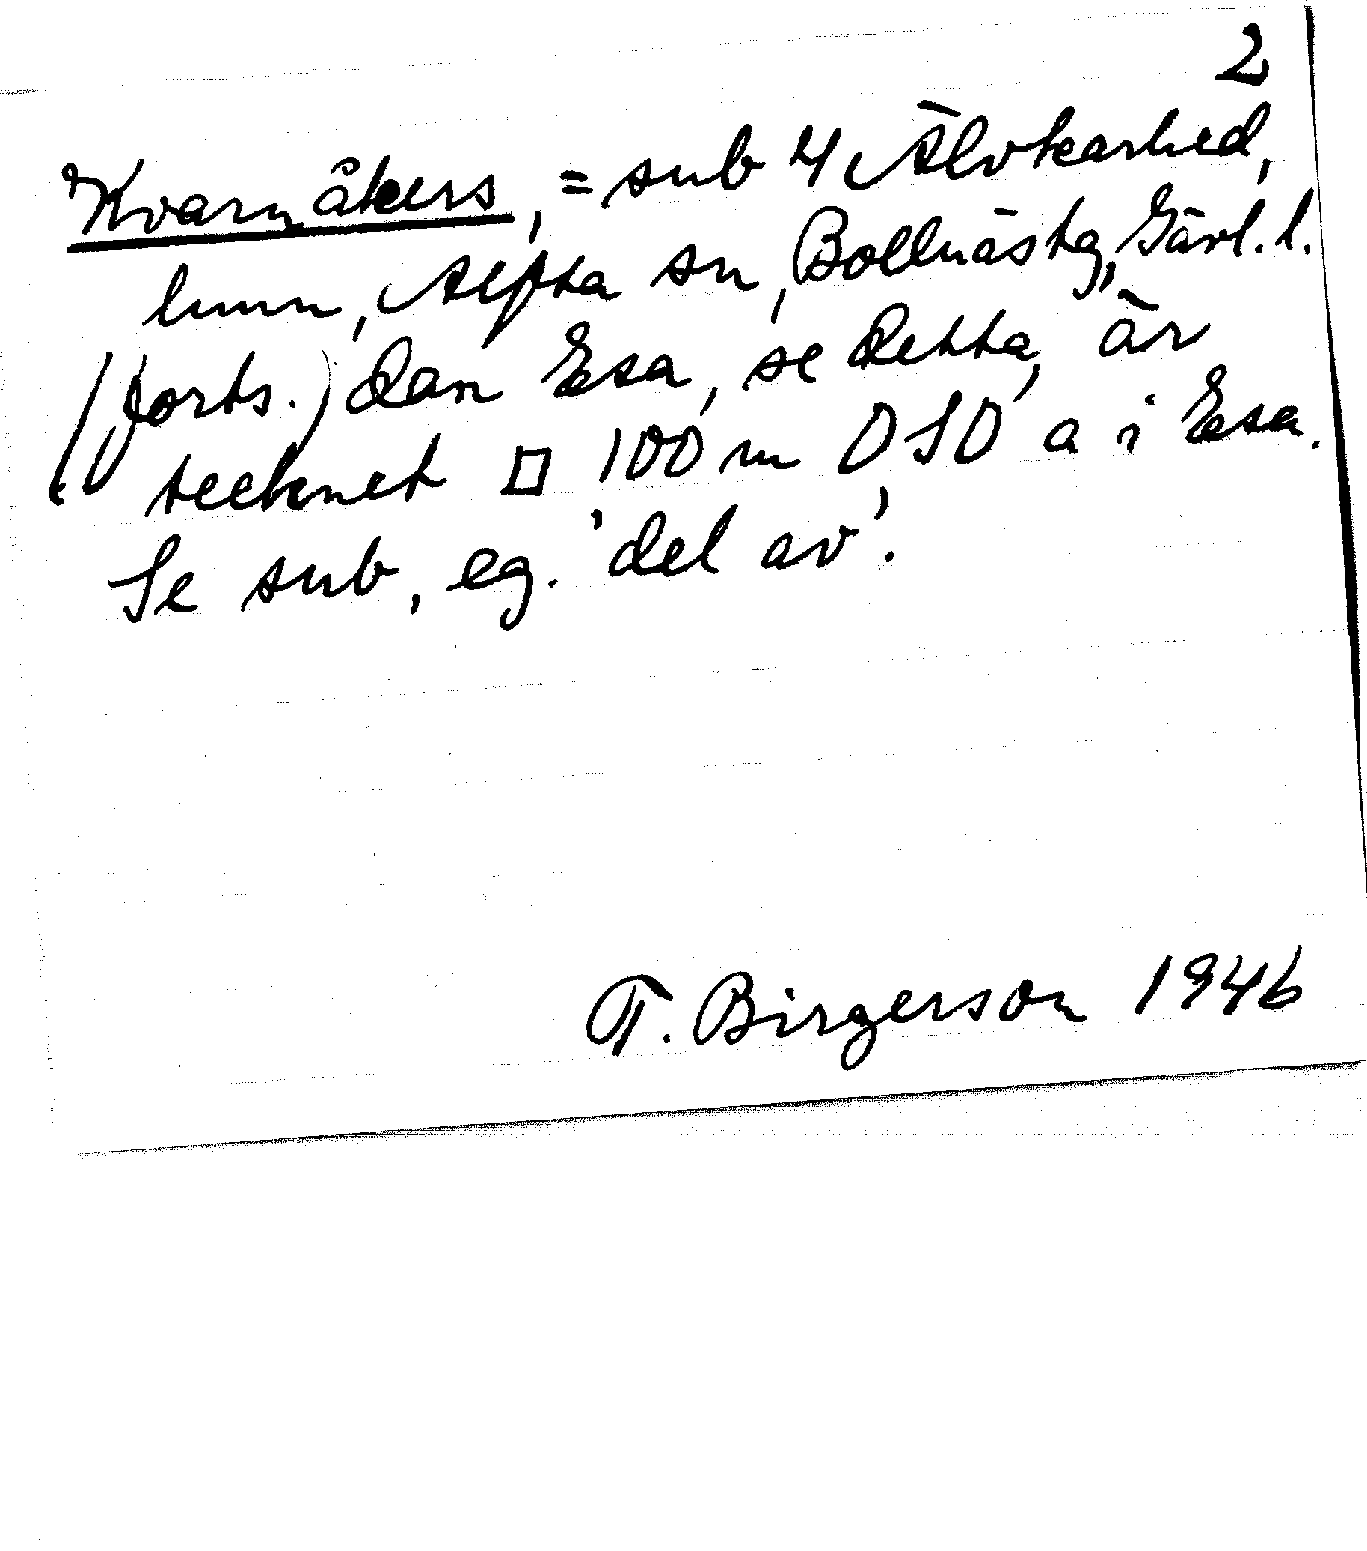 2
Kvarnåkers, = sub 4 Älvkarhed,
hmn, Alfta sn, Bollnästg, Gävl. l.
(forts.) dan Esa, se detta, är
tecknet □ 100 m OSO a i Esa.
Se sub, eg. 'del av'.
T. Birgerson 1946